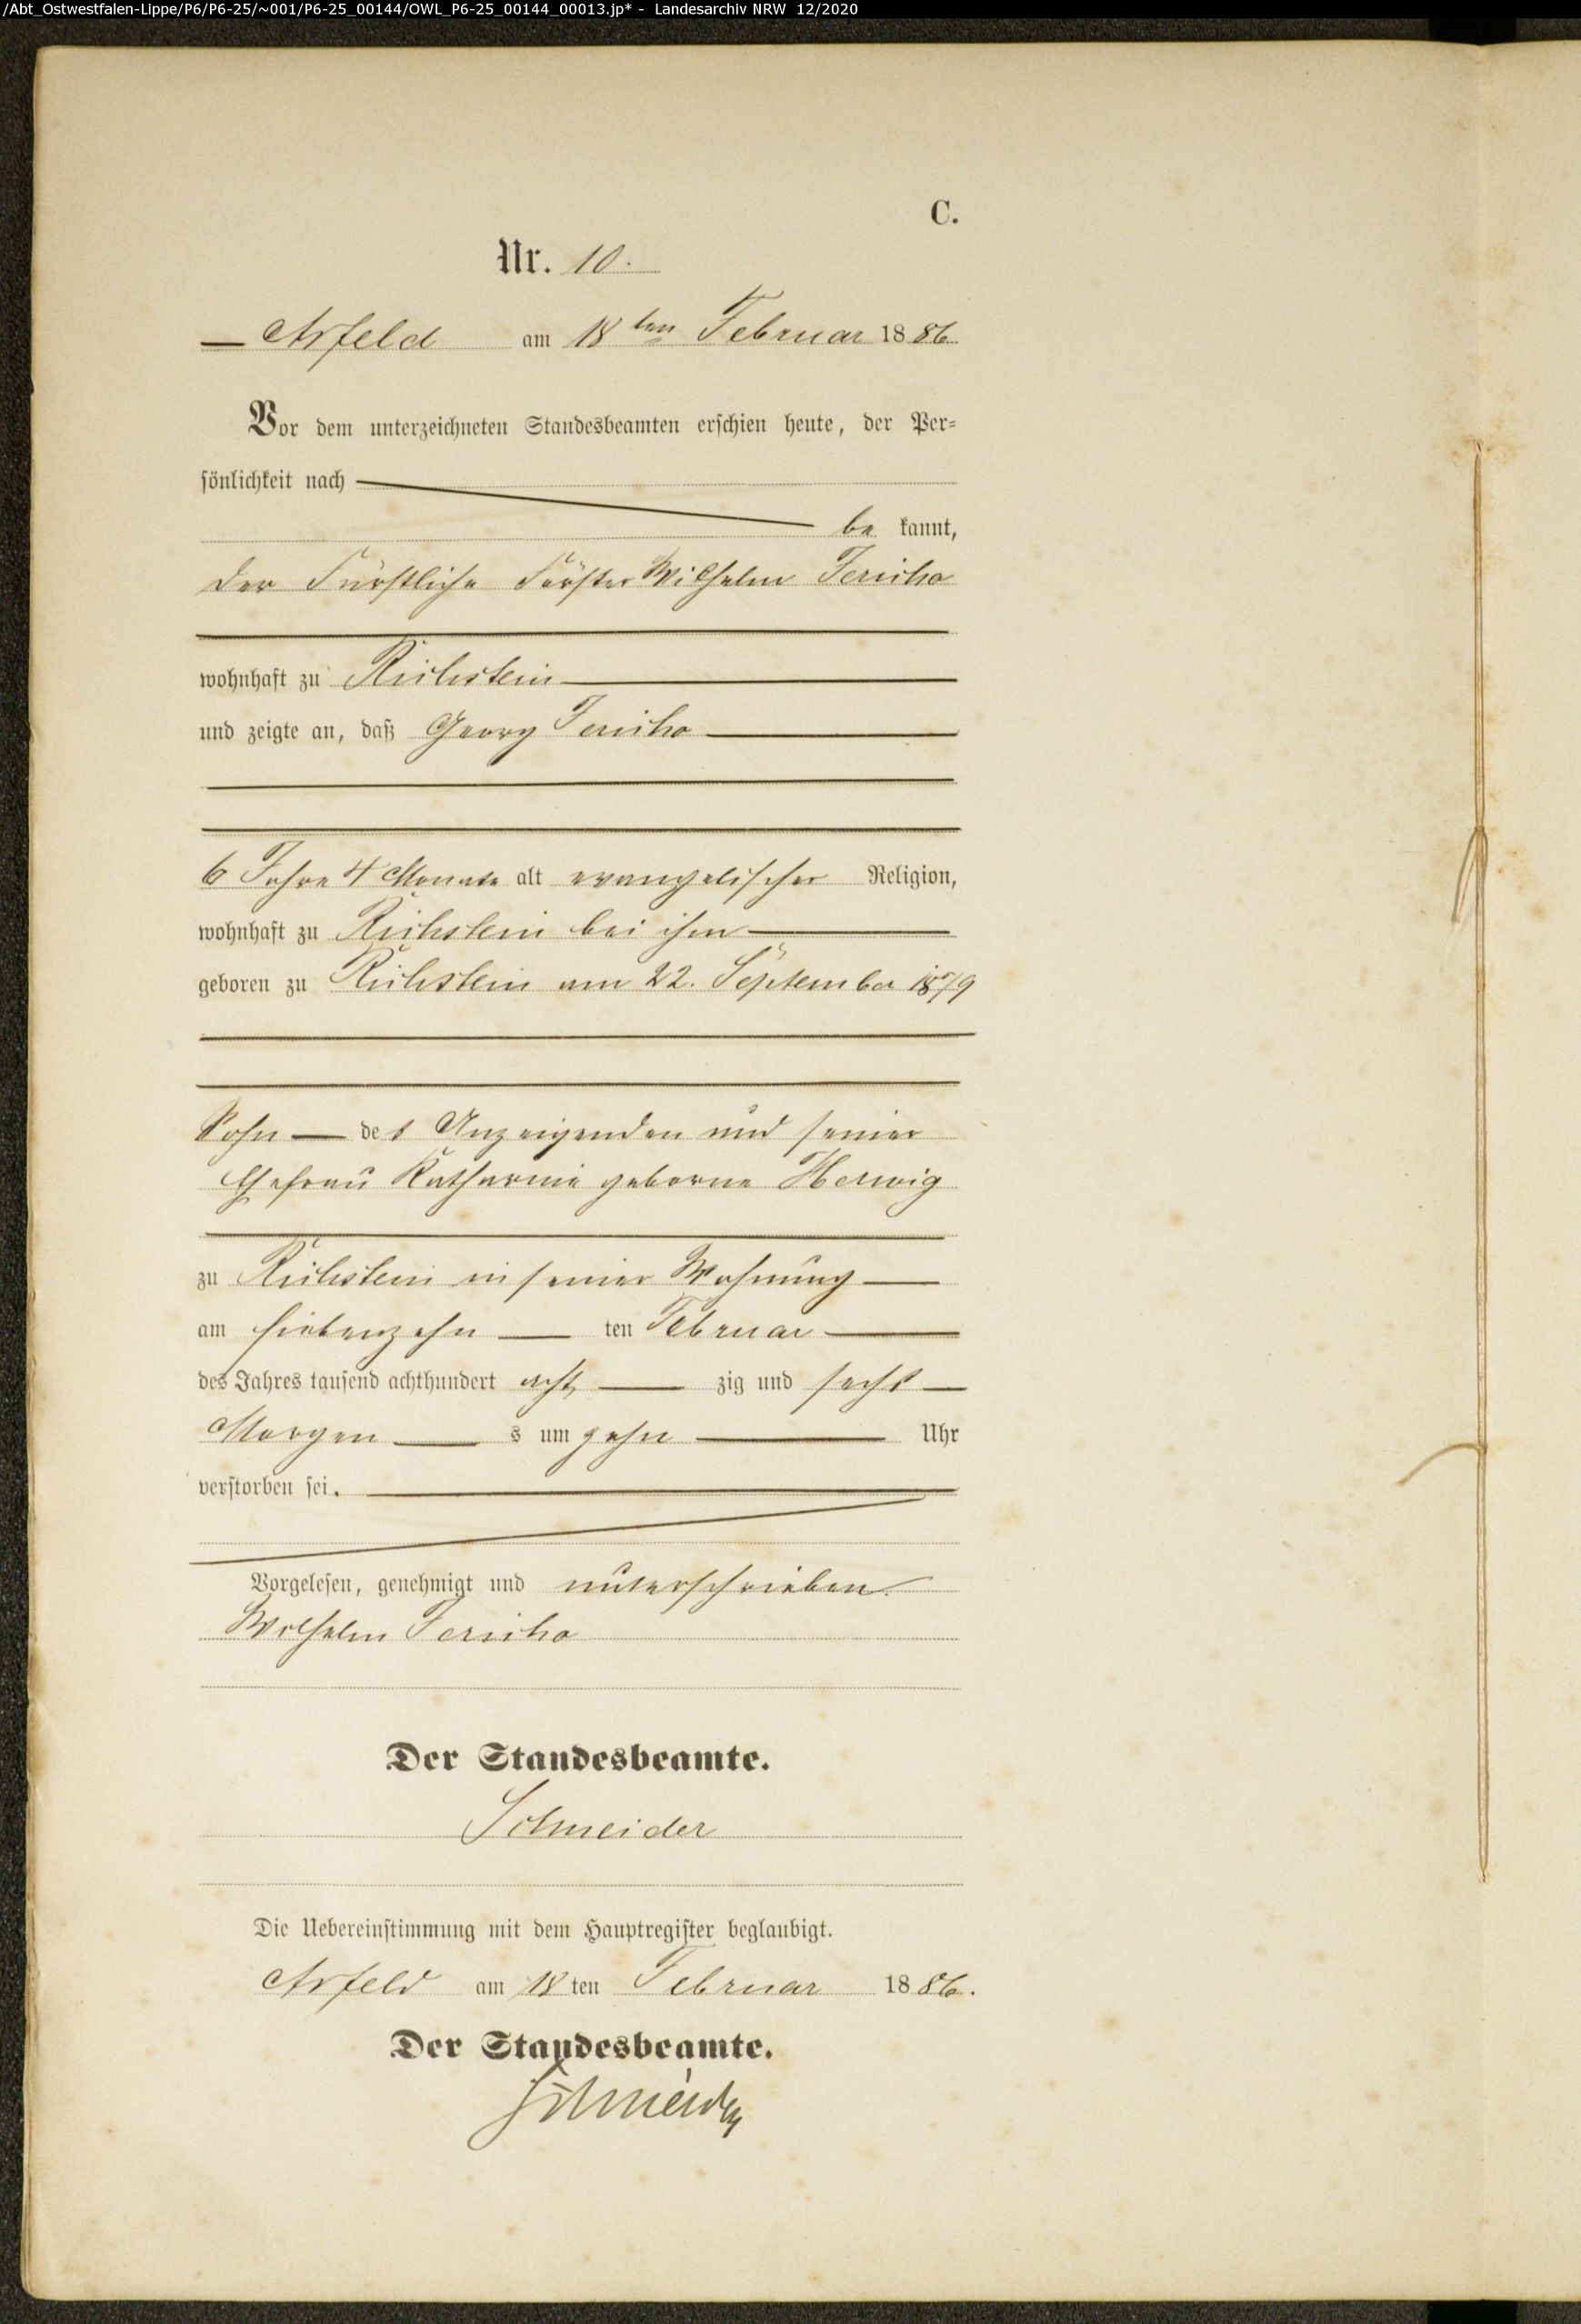 /Abt_Ostwestfalen-Lippe/P6/P6-25/~001/P6-25_00144/OWL_P6-25_00144_00013.jp* - Landesarchiv NRW 12/2020
C.
Nr. 10.
Arfeld am 18ten Februar 1886
Vor dem unterzeichneten Standesbeamten erschien heute, der Per-
sönlichkeit nach
be kannt,
der Fürstliche Förster Wilhelm Jericho
wohnhaft zu Richstein
und zeigte an, daß Georg Jericho
6 Jahre 4 Monate alt evangelischer Religion,
wohnhaft zu Richstein bei ihm
geboren zu Richstein am 22. September 1879
Sohn des Anzeigenden und seiner
Ehefrau Katharine geborne Herwig
zu Richstein in seiner Wohnung
am siebenzehn ten Februar
des Jahres tausend achthundert acht zig und sechs
Morgen s um zehn Uhr
verstorben sei.
Vorgelesen, genehmigt und unterschrieben.
Wilhelm Jericho
Der Standesbeamte.
Schneider
Die Uebereinstimmung mit dem Hauptregister beglaubigt.
Arfeld am 18 ten Februar 1886.
Der Standesbeamte.
Schneider